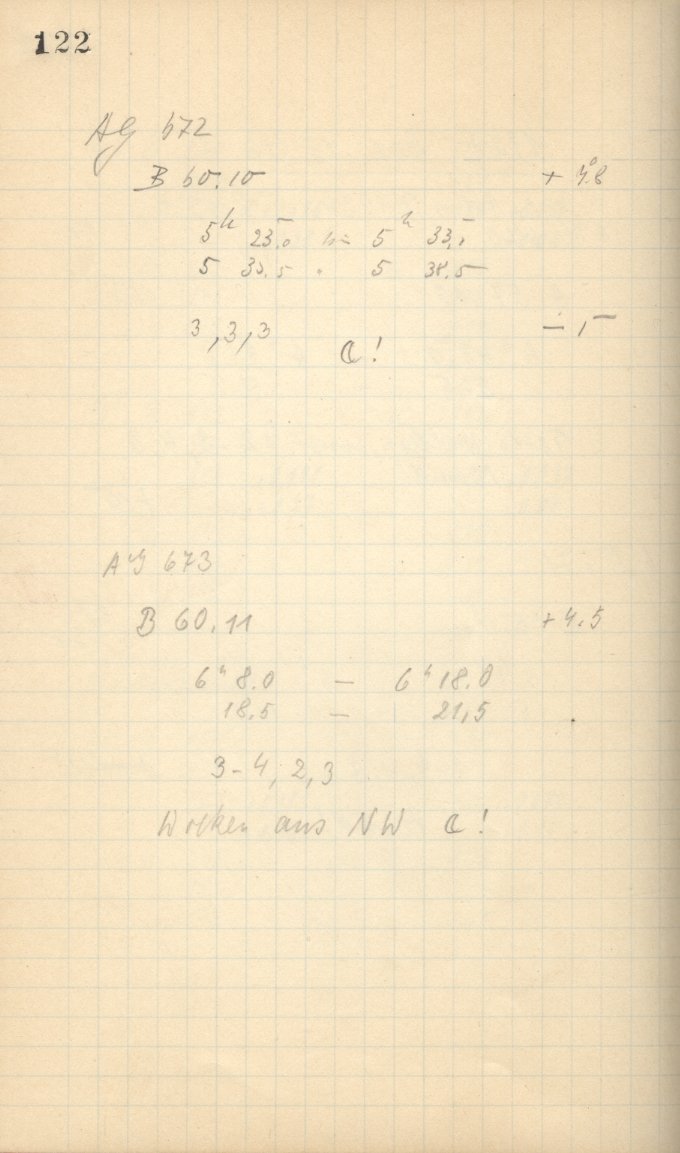 122
AG 672
B 60.10 + 4°.8
5h 25.0 bis 5h 33.5
5 35.5 " 5 38.5
3, 3, 3
☾!
AG 673
B 60.11 + 4.5
6h 8.0 – 6h 18.0
18.5 – 21,5
3-4, 2, 3
Wolken aus NW ☾!